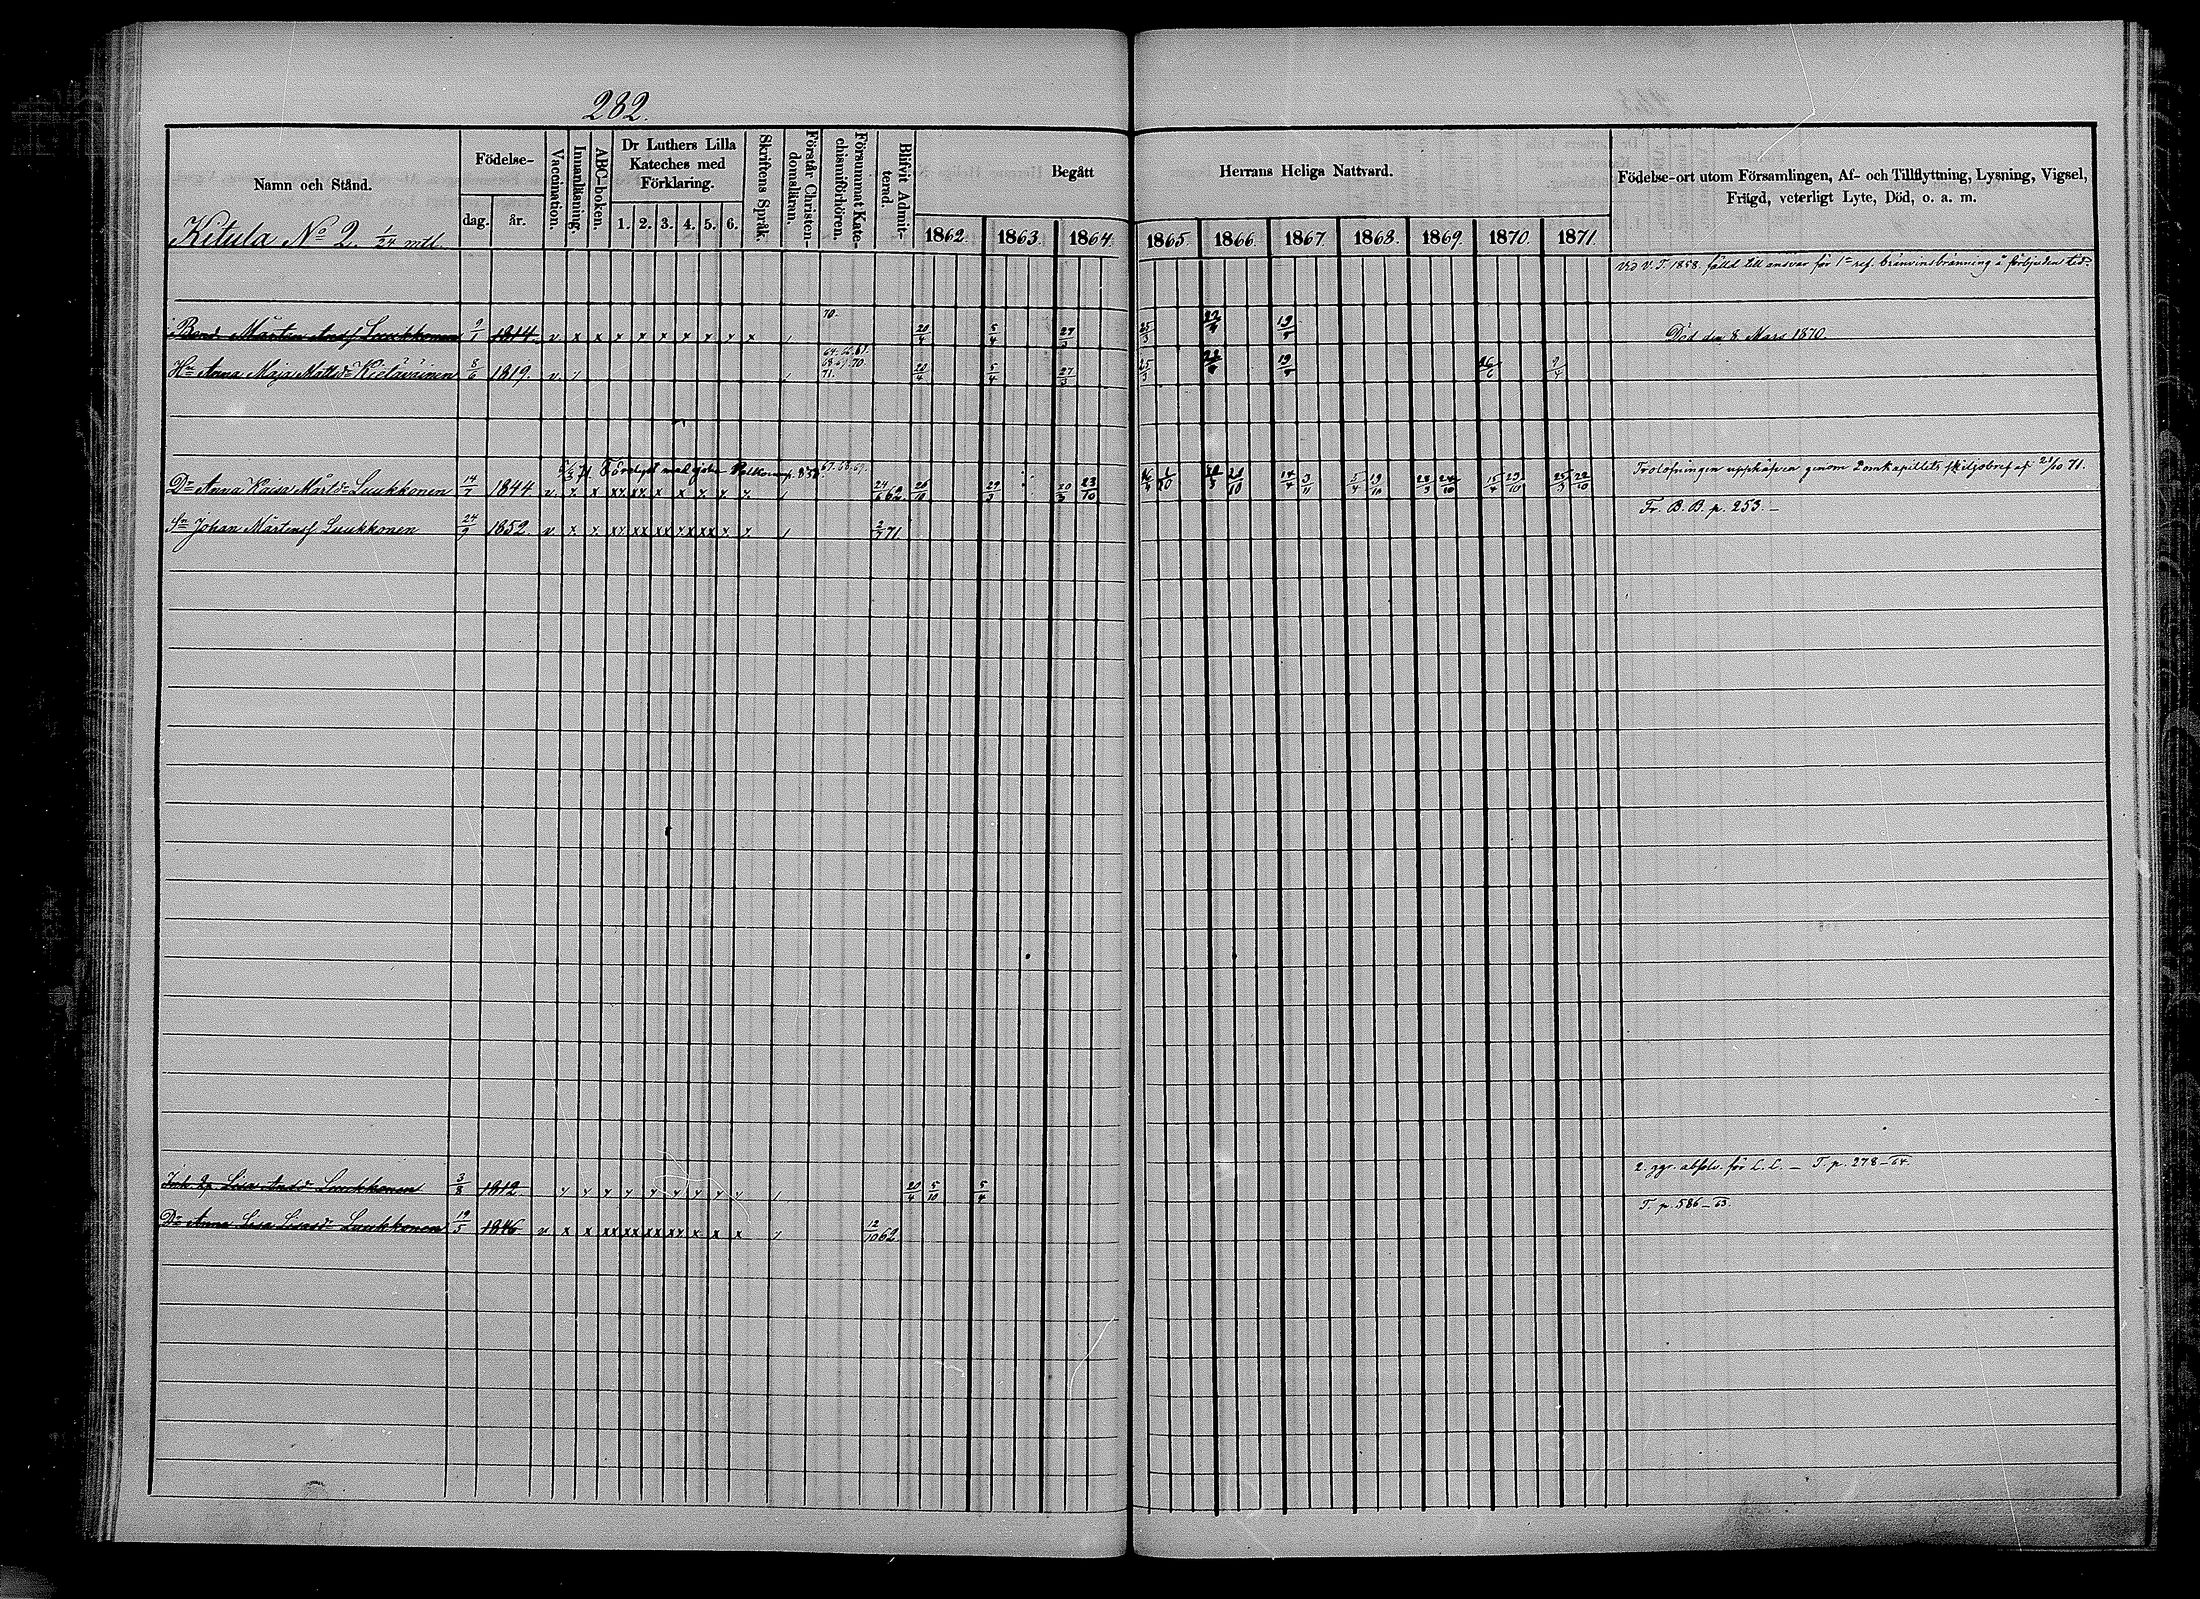 282.
Namn och Stånd.
Födelse-
dag.
år.
Vaccination.
Innanläsning.
ABC-boken.
Dr Luthers Lilla
Kateches med
Förklaring.
1. 2. 3. 4. 5. 6.
Skriftens Språk.
Förstår Christen-
domsläran.
Försummat Kate-
chismiförhören.
Blifvit Admit-
terad.
Begått
Herrans Heliga Nattvard.
1862. 1863. 1864. 1865. 1866. 1867. 1868. 1869. 1870. 1871.
Födelse-ort utom Församlingen, Af- och Tillflyttning, Lysning, Vigsel,
Frägd, veterligt Lyte, Död, o. a. m.
Kitula No 2. 1/24 mtl.
Vid V. T. 1858 fälld till ansvar för 1a ref. bränvinsbränning å förbjuden tid.
70.
Bond. Mårten Andf Luukkonen 9/1 1814. v x x x x x x x x x 1 20/4 5/4 27/3 25/3 19/4 Död den 8 Mars 1870.
64. 66. 67.
68. 69. 70.
71.
Hu Anna Maja Mattsdr Kietäväinen 8/6 1819. v 1 20/4 5/4 27/3 25/3 19/4 26/6 9/4
67. 68. 69.
Dr Anna Kaisa Mårtdr Luukkonen 14/7 1844 v. x x xx xx x x x x x 1 24/6 62 26/10 29/3 20/3 23/10 21/10 14/4 3/11 5/4 19/10 28/3 24/10 15/4 23/10 25/3 22/10 Trolofningen upphäfven genom Domkapitlets skiljobref af 21/10 71.
Fr. B. B. p. 253. -
Sn Johan Mårtensf Luukkonen 24/9 1852. v. x x xx xx xx xx xx x x 1 2/7 71
2. ggr. absolv. för L. L. - T. p. 278 - 64.
Lisa Andd Luukkonen 3/8 1812. x x x x x x x x x 1 20/4 5/10 5/4
T. p. 586 - 63.
Dr Anna Lisa Lisasdr Luukkonen 19/5 1846. v x x xx xx xx xx x x x 12/10 62